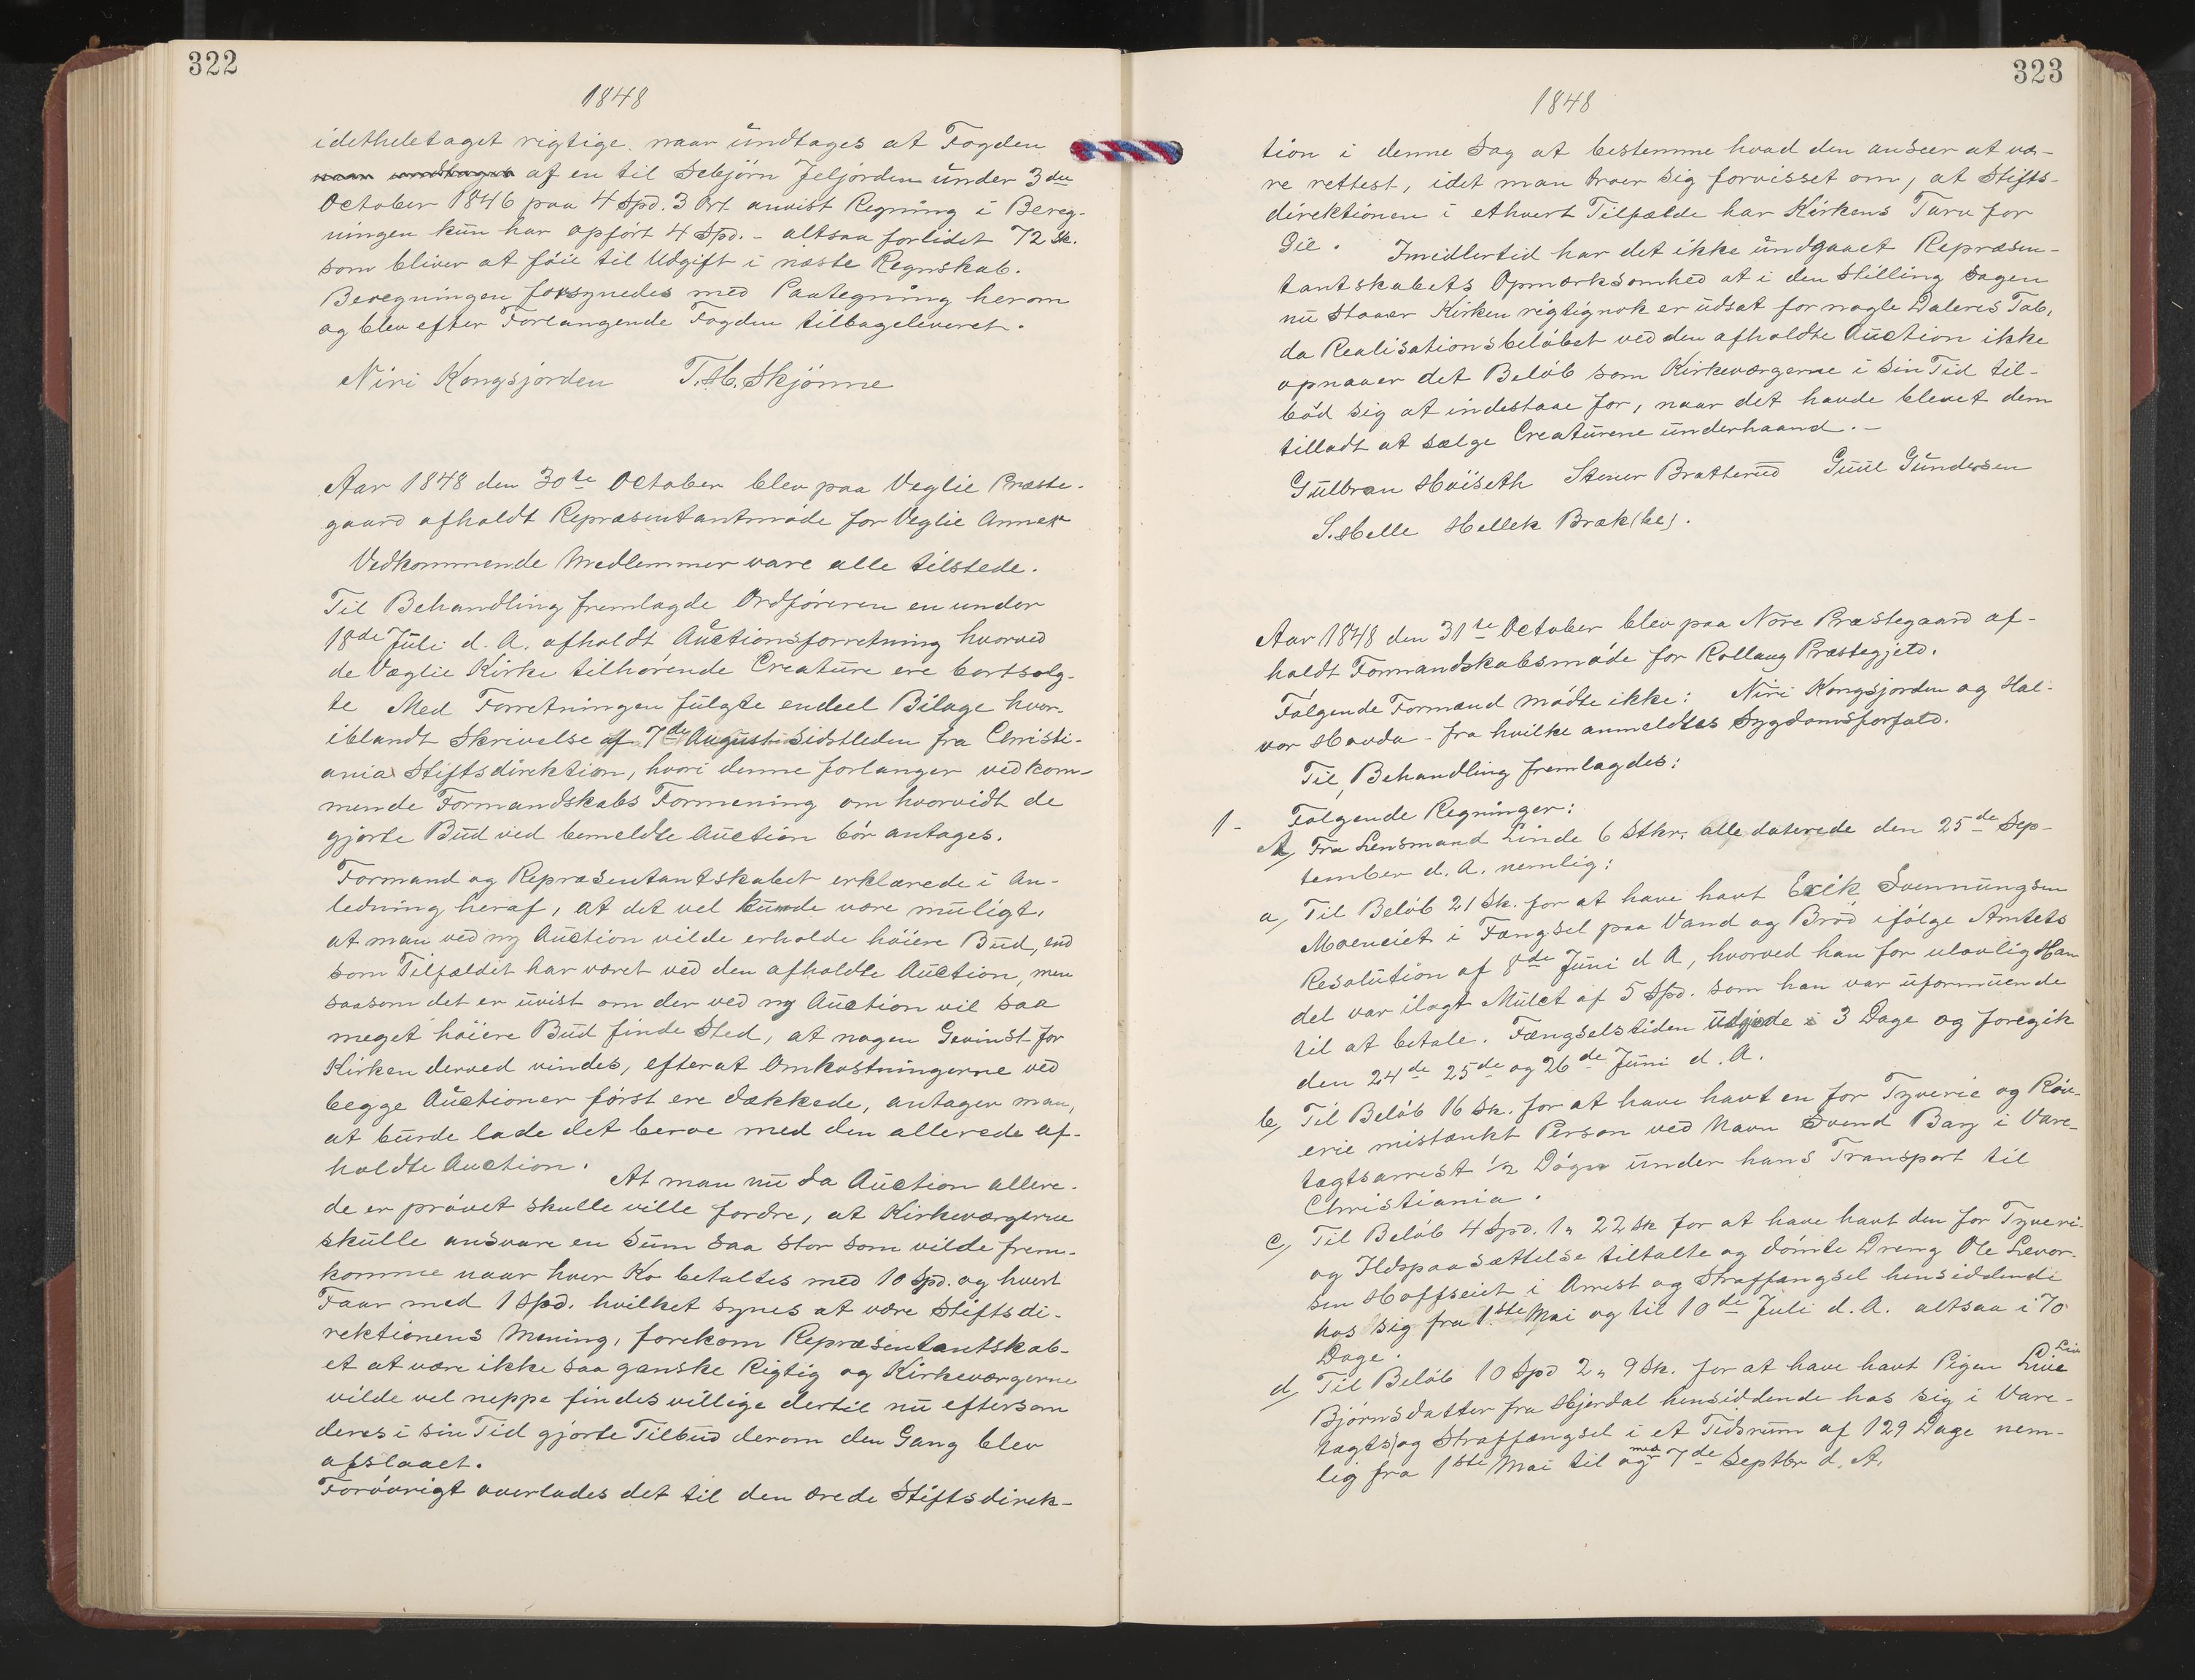 322
1848
idetheletaget rigtige naar undtages at Fogden
naar undtages af en til Sebjörn Jeljorden under 3die
October 1846 paa 4 Spd. 3 Ort anvist Regning i Bereg-
ningen kun har opfört 4 Spd. - altsaa forlidet 72 Sk.
som bliver at föie til Udgift i næste Regnskab.
Beregningen forsynedes med Paategning herom
og blev efter Forlangende Fogden tilbageleveret.
Niri Kongsjorden T. H. Skjönne
Aar 1848 den 30te October blev paa Veglie Præste-
gaard afholdt Repræsentantmöde for Veglie Annex
Vedkommende Medlemmer vare alle tilstede.
Til Behandling fremlagde Ordföreren en under
18de Juli d. A. afholdt Auctionsforretning hvorved
de Væglie Kirke tilhörende Creature ere bortsolg-
te Med Forretningen fulgte endeel Bilage hvor-
iblandt Skrivelse af 7de August sidstleden fra Christi-
ania Stiftsdirektion, hvori denne forlanger vedkom-
mende Formandskabs Formening om hvorvidt de
gjorte Bud ved bemeldte Auction bör antages.
Formand og Repræsentantskabet erklærede i An-
ledning heraf, at det vel kunde være muligt,
at man ved ny Auction vilde erholde höiere Bud, end
som Tilfældet har været ved den afholdte Auction, men
saasom det er uvist om der ved ny Auction vil saa
meget höiere Bud finde Sted, at nogen Gevinst for
Kirken derved vindes, efterat Omkostningerne ved
begge Auctioner först ere dækkede, antager man,
at burde lade det beroe med den allerede af-
holdte Auction. At man nu da Auction allere-
de er prövet skulle ville fordre, at Kirkeværgerne
skulle ansvare en Sum saa stor som vilde frem-
komme naar hver Ko betaltes med 10 Spd. og hvert
Faar med 1 Spd. hvilket synes at være Stiftsdi-
rektionens Mening, forekom Repræsentantskab-
et at være ikke saa ganske Rigtig og Kirkeværgerne
vilde vel neppe findes villige dertil nu eftersom
deres i sin Tid gjorte Tilbud derom den Gang blev
afslaaet.
Forövrigt overlades det til den ærede Stiftsdirek-
323
1848
tion i denne Sag at bestemme hvad den anseer at væ-
re rettest, idet man troer sig forvisset om, at Stifts-
direktionen i ethvert Tilfælde har Kirkens Tarv for
Öie. Imidlertid har det ikke undgaaet Repræsen-
tantskabets Opmærksomhed at i den Stilling Sagen
nu staaer Kirken rigtignok er udsat for nogle Dalers Tab,
da Realisationsbelöbet ved den afholdte Auction ikke
opnaaer det Belöb som Kirkeværgerne i sin Tid til-
böd sig at indestaae for, naar det havde blevet dem
tilladt at sælge Creaturene underhaand. -
Gulbran Höiseth Stener Bratterud Guul Gundersen
S. Helle Hellek Bræk(ke).
Aar 1848 den 31te October blev paa Nore Præstegaard af-
holdt Formandskabsmöde for Rollaug Præstegjeld.
Fölgende Formænd mödte ikke: Niri Kongsjorden og Hal-
vor Hovda - fra hvilke anmeldtes Sygdomsforfald.
Til Behandling fremlagdes:
1- Fölgende Regninger:
A) Fra Lensmand Linde 6 Stkr. alle daterede den 25de Sep-
tember d. A. nemlig:
a) Til Belöb 21 Sk. for at have havt Erik Svennungsen
Moeneiet i Fængsel paa Vand og Bröd ifölge Amtets
Resolution af 8de Juni d A, hvorved han for ulovlig Han
del var ilagt Mulct af 5 Spd. som han var uformuende
til at betale. Fængselstiden udgjorde 3 Dage og foregik
den 24de 25de og 26de Juni d. A.
b) Til Belöb 16 Sk. for at have havt en for Tyverie og Röv-
erie mistænkt Person ved Navn Svend Barg i Vare-
tægtsarrest 1/2 Dögn under hans Transport til
Christiania.
c) Til Belöb 4 Spd. 1 " 22 Sk for at have havt den for Tyveri
og Ildspaasættelse tiltalte og dömte Dreng Ole Levor-
sen Hoffseiet i Arrest og Straffangsel hensiddende
hos sig fra 1ste Mai og til 10de Juli d. A. altsaa i 70
Dage.
d) Til Belöb 10 Spd 2 " 9 Sk. for at have havt Pigen Live Liv
Björnsdatter fra Hjerdal hensiddende hos sig i Vare-
tægts) og Straffængsel i et Tidsrum af 129 Dage nem-
lig fra 1ste Mai til og med 7de Septbr d. A.